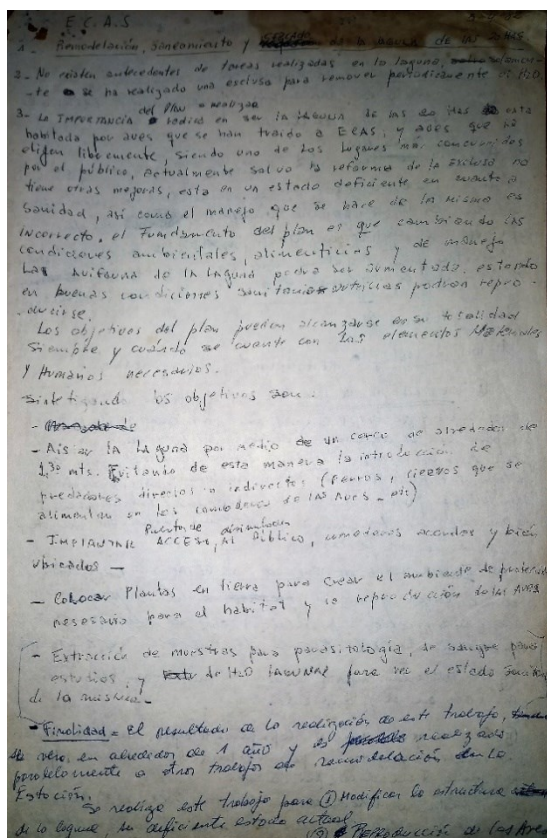 E.C.A.S
1 - Remodelación, Saneamiento y de la laguna de las 20 Hás
2 - No existen antecedentes de tareas realizadas en la laguna,
-te se ha realizado una esclusa para remover periódicamente el H2O,
del Plan a realizar
3 - La IMPORTANCIA radica en ser la LAGUNA de las 20 Hás esta
habitada por aves que se han traído a ECAS, y aves que la
eligen libremente, siendo uno de los lugares más concurridos
por el público, actualmente salvo la reforma de la esclusa no
tiene otras mejoras, esta en un estado deficiente en cuanto a
Sanidad, así como el manejo que se hace de la misma es
incorrecto, el Fundamento del plan es que cambiando las
condiciones ambientales, alimenticias y de manejo
Las Avifauna de la Laguna podra ser aumentada, estando
en buenas condiciones Sanitarias nutricias podran repro-
-ducirse.
Los objetivos del plan pueden alcanzarse en su totalidad
Siempre y cuándo se cuente con Los elementos Materiales
y Humanos necesarios.
Sintetizando los objetivos son:
- Aislar la Laguna por medio de un cerco de alrededor de
1,30 mts. Evitando de esta manera la introducción de
predadores directos o indirectos (Perros, ciervos que se
alimentan en los comederos de las Aves - etc)
- IMPLANTAR ACCESO, AL Público, comederos acordes y bién
ubicados -
- Colocar Plantas en tierra para crear el ambiente de
necesario para el habitat y la reproducción de las Aves
- Extracción de muestras para parasitología, de sangre para
estudios, y de H2O LAGUNAR para ver el estado
de la misma -
- Finalidad = El resultado de la realización de este trabajo,
se verá, en alrededor de 1 año y es realizado
paralelamente a otros trabajos de remodelación de la
Estación.
Se realiza este trabajo para ① Modificar la estructura
de la laguna, su deficiente estado actual
② Reproducción de las Aves